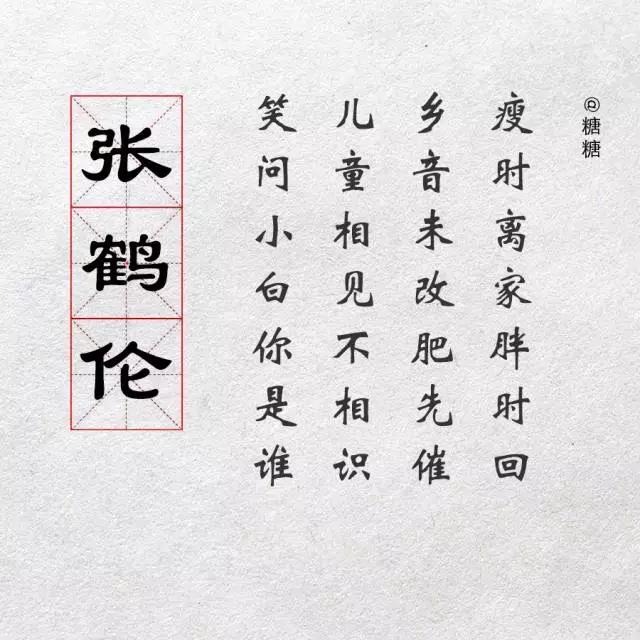 @糖糖
瘦时离家胖时回
乡音未改肥先催
儿童相见不相识
笑问小白你是谁
张鹤伦